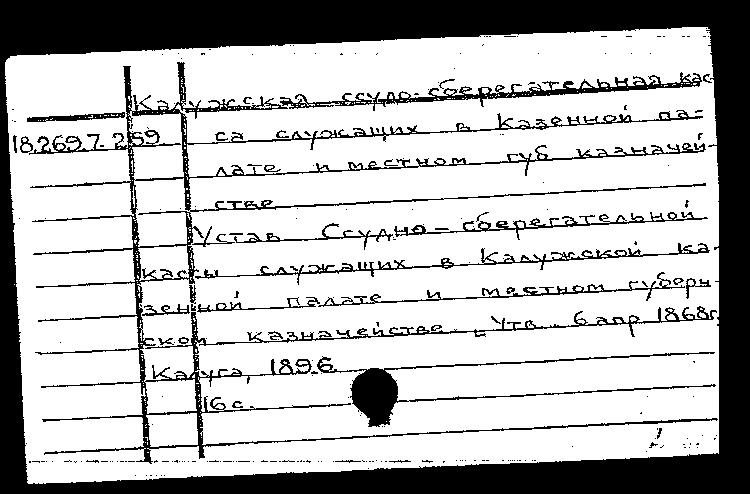 Калужская ссудо-сберегательная кас-
18.269.7.299 са служащих в Казенной па-
лате и местном губ казначей-
стве
Устав Ссудно-сберегательной
кассы служащих в Калужской ка-
зенной палате и местном губерн-
ском казначействе. Утв. 6 апр 1868г.
Калуга, 1896.
16 с.